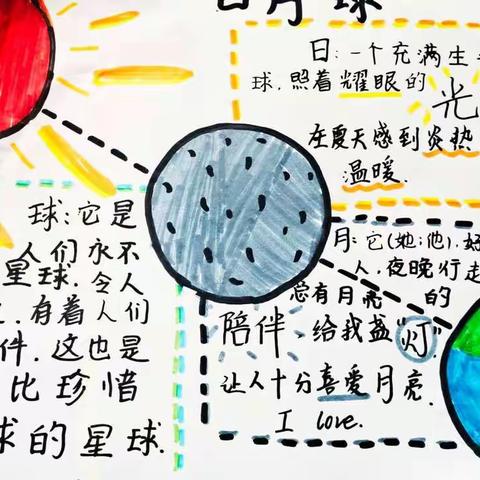 日月球
日:一个充满生
球,照着耀眼的
光
在夏天感到炎热
温暖.
球:它是
人们永不
星球.令人
有着人们
件.这也是
比珍惜
球的星球.
月:它(她;他).好
人,夜晚行走
总有月亮 的
陪伴,给我盏"灯"
让人十分喜爱月亮.
I love.